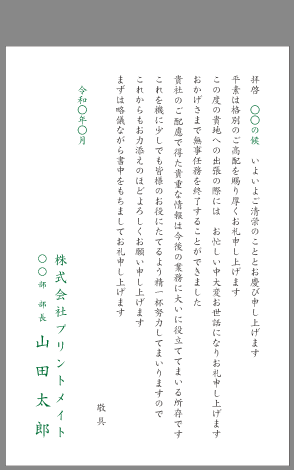 拝啓　〇〇の候　いよいよご清栄のこととお慶び申し上げます
平素は格別のご高配を賜り厚くお礼申し上げます
この度の貴地への出張の際には　お忙しい中大変お世話になりお礼申し上げます
おかげさまで無事任務を終了することができました
貴社のご配慮で得た貴重な情報は今後の業務に大いに役立ててまいる所存です
これを機に少しでも皆様のお役にたてるよう精一杯努力してまいりますので
これからもお力添えのほどよろしくお願い申し上げます
まずは略儀ながら書中をもちましてお礼申し上げます
敬具
令和〇年〇月
株式会社プリントメイト
〇〇部　部長　山田太郎